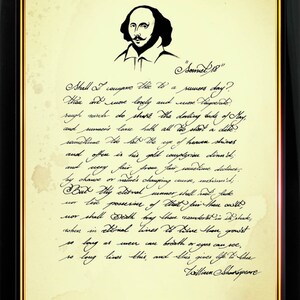 "Sonnet 18"
Shall I compare the to a summers day?
thou art more lovely and more temperate
rough winds do shake the darling buds of May,
and summers lease hath all to short a date
sometimes too hot the eye of heaven shines
and often is his gold complexion dimm'd,
and every fair from fair sometime declines,
by chance or natures changing course untrimm'd,
But thy eternal summer shall not fade
nor lose possession of that fair thou
nor shall death brag thou wander'st in his shade,
when in eternal lines to time thou grow'st
so long as men can breath or eyes can see,
so long lives this and this gives life to thee
William Shakespeare